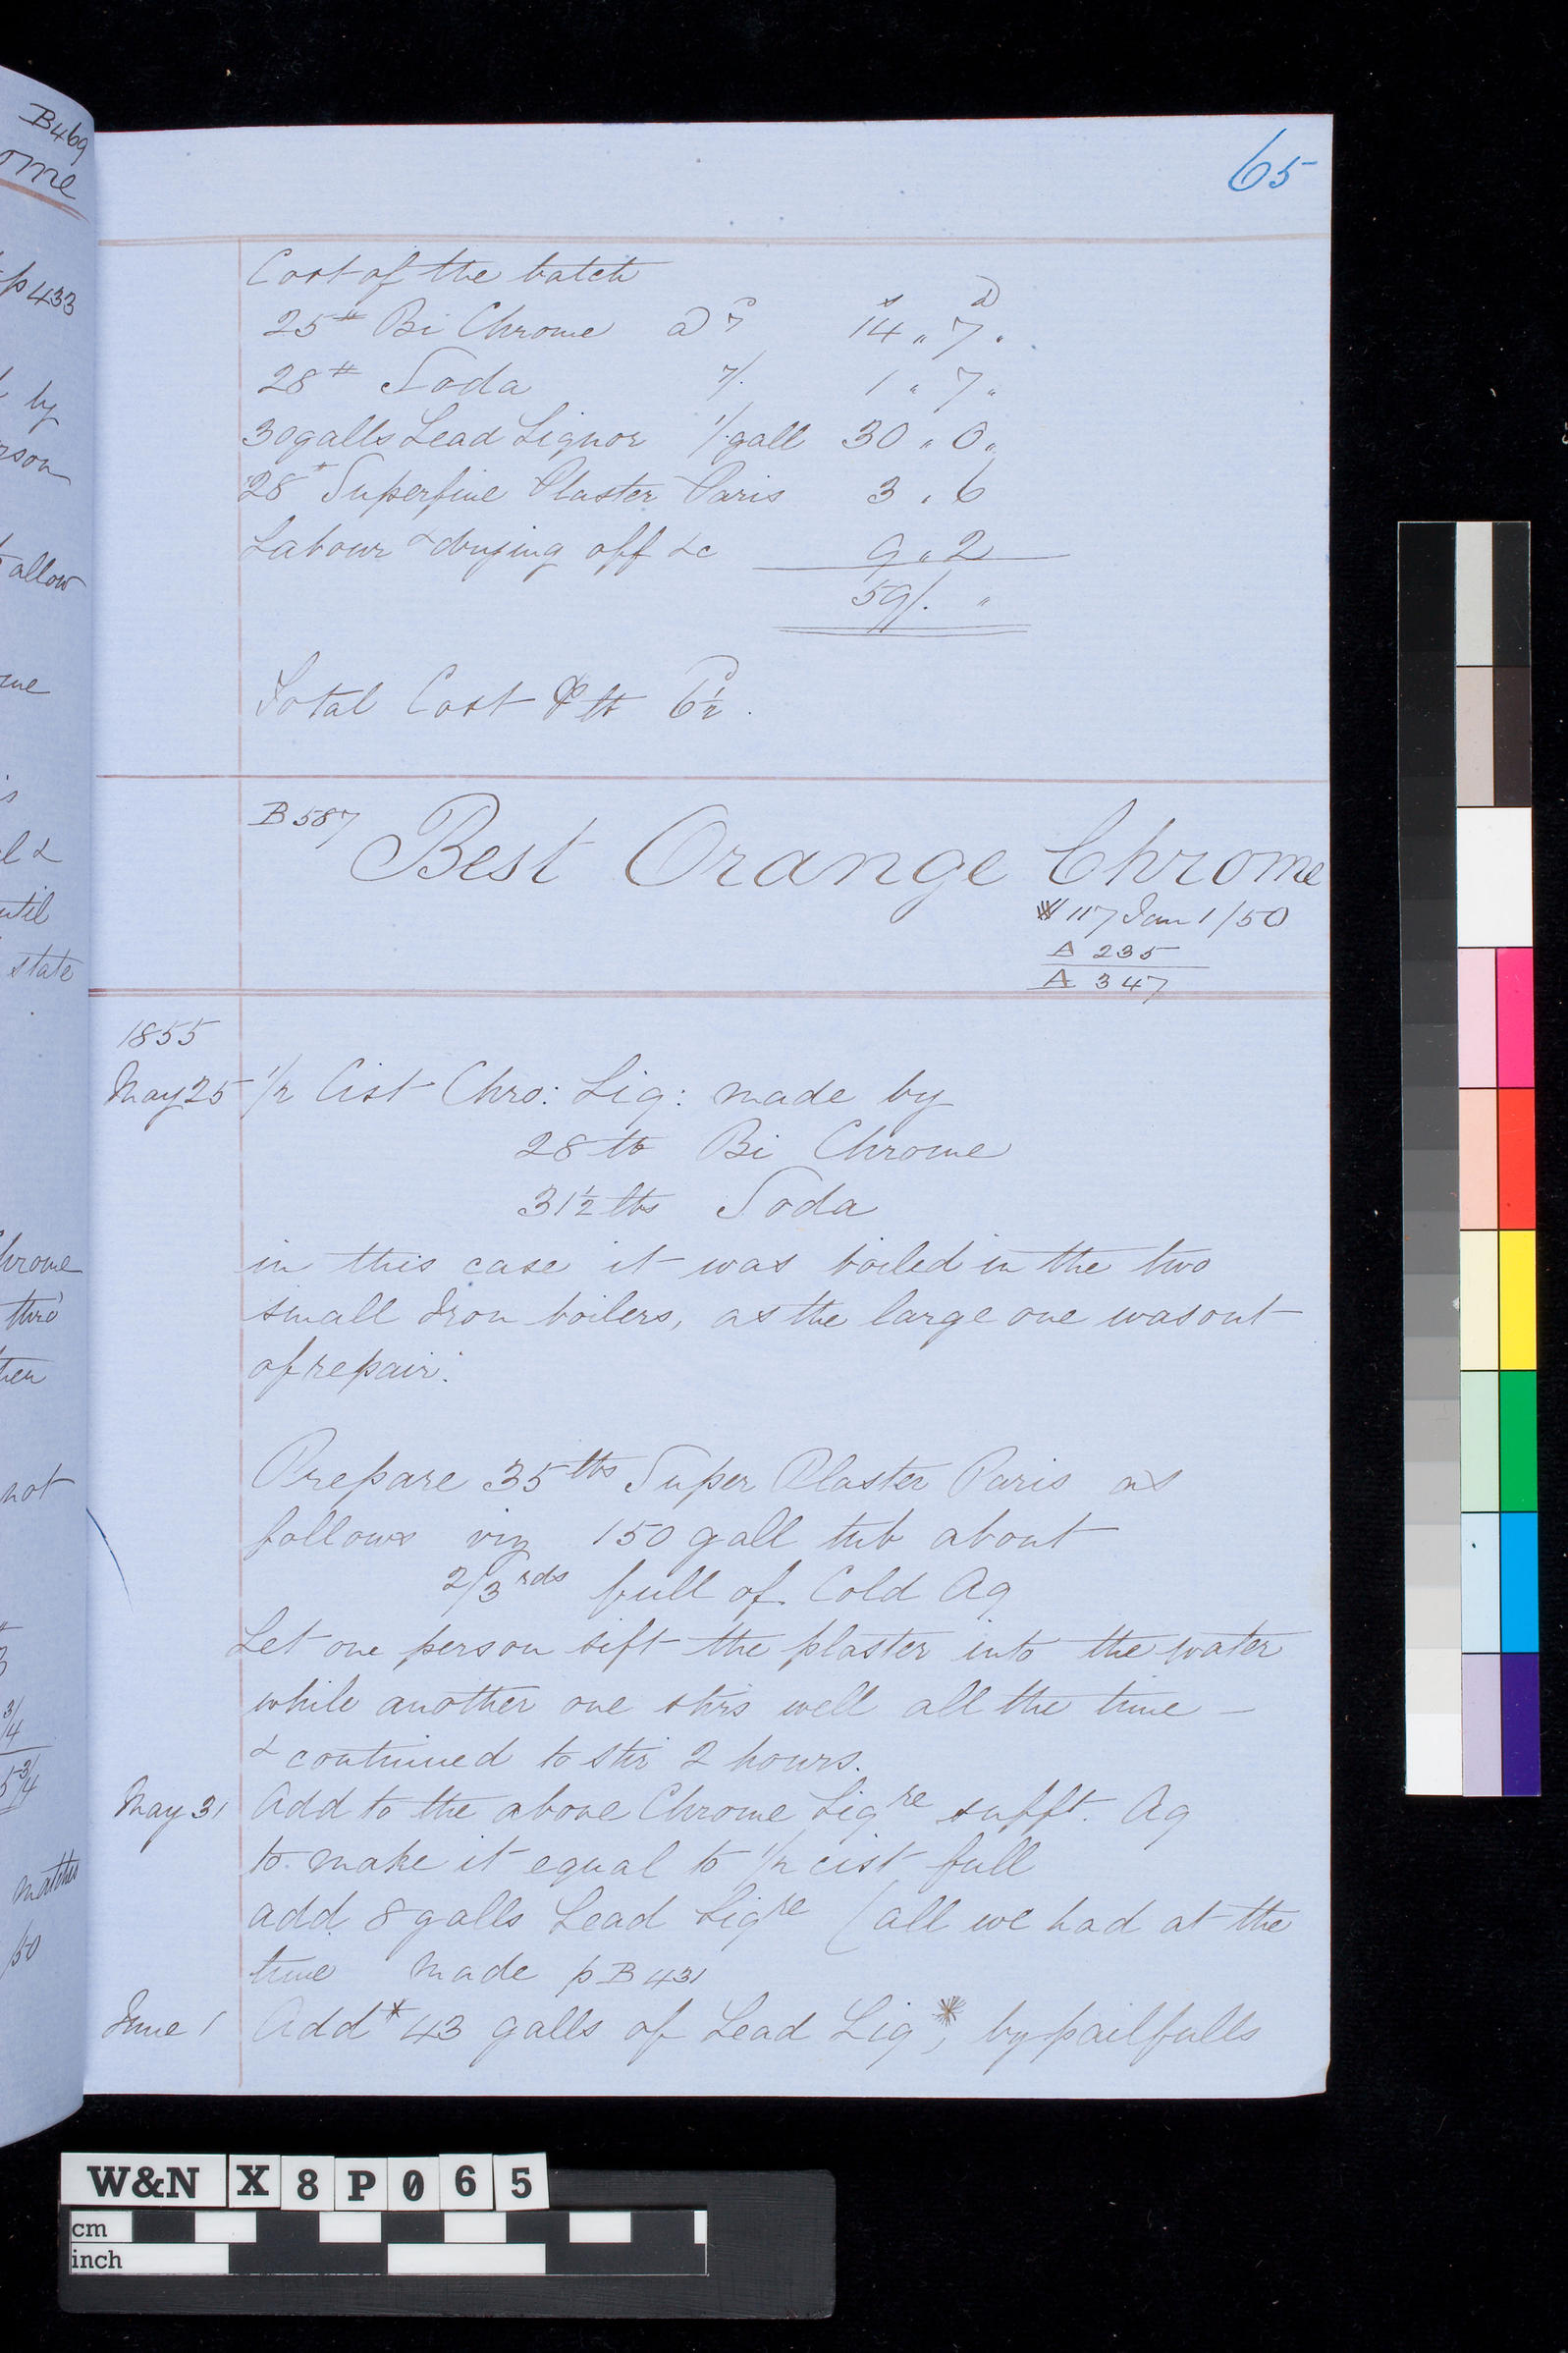 B469
ome
p 433
by
rson
allow
me
l &
until
state
Chrome
thro'
then
not
3/4
5 3/4
matches
/50
65
Cost of the batch
s d
25 # Bi Chrome @ 7d 14 " 7 "
28 # Soda 7/. 1 " 7 "
30 galls Lead Liquor 1/. gall 30 " 0 "
28 # Superfine Plaster Paris 3 " 6
Labour & drying off &c 9 " 2
59/. "
Total Cost ⅌ lb 6½d.
B 587
Best Orange Chrome
117 Jan 1/50
A 235
A 347
1855
May 25 1/2 Cist Chro: Liq: made by
28 lb Bi Chrome
31½ lbs Soda
in this case it was boiled in the two
small Iron boilers, as the large one was out
of repair.
Prepare 35 lbs Super Plaster Paris as
follows viz 150 gall tub about
2/3rds full of Cold Aq
Let one person sift the plaster into the water
while another one stirs well all the time –
& continued to stir 2 hours.
May 31 Add to the above Chrome Liqre sufft. Aq
to make it equal to 1/2 cist full
add 8 galls Lead Liqre (all we had at the
time made p B 431
June 1 Add * 43 galls of Lead Liq *, by pailfulls
W&N X8P065
cm
inch